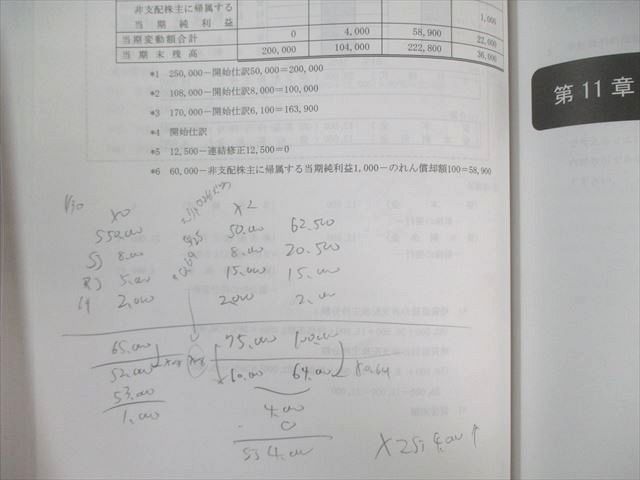 非支配株主に帰属する
当期純利益 1,000
当期変動額合計 0 4,000 58,900 22,000
当期末残高 200,000 104,000 222,800 36,000
*1 250,000－開始仕訳50,000＝200,000
*2 108,000－開始仕訳8,000＝100,000
*3 170,000－開始仕訳6,100＝163,900
*4 開始仕訳
*5 12,500－連結修正12,500＝0
*6 60,000－非支配株主に帰属する当期純利益1,000－のれん償却額100＝58,900
第11章
X0 X2
50.000 62.500
SJ 8.000 8.000 20.500
RJ 5.000 15.000 15.000
2.000 2.000 2.000
65.000 75.000 100.000
52.000 60.000 64.000 80.64
53.000
1.000 4.000
0
SJ 4.000
X2SJ 4.000↑